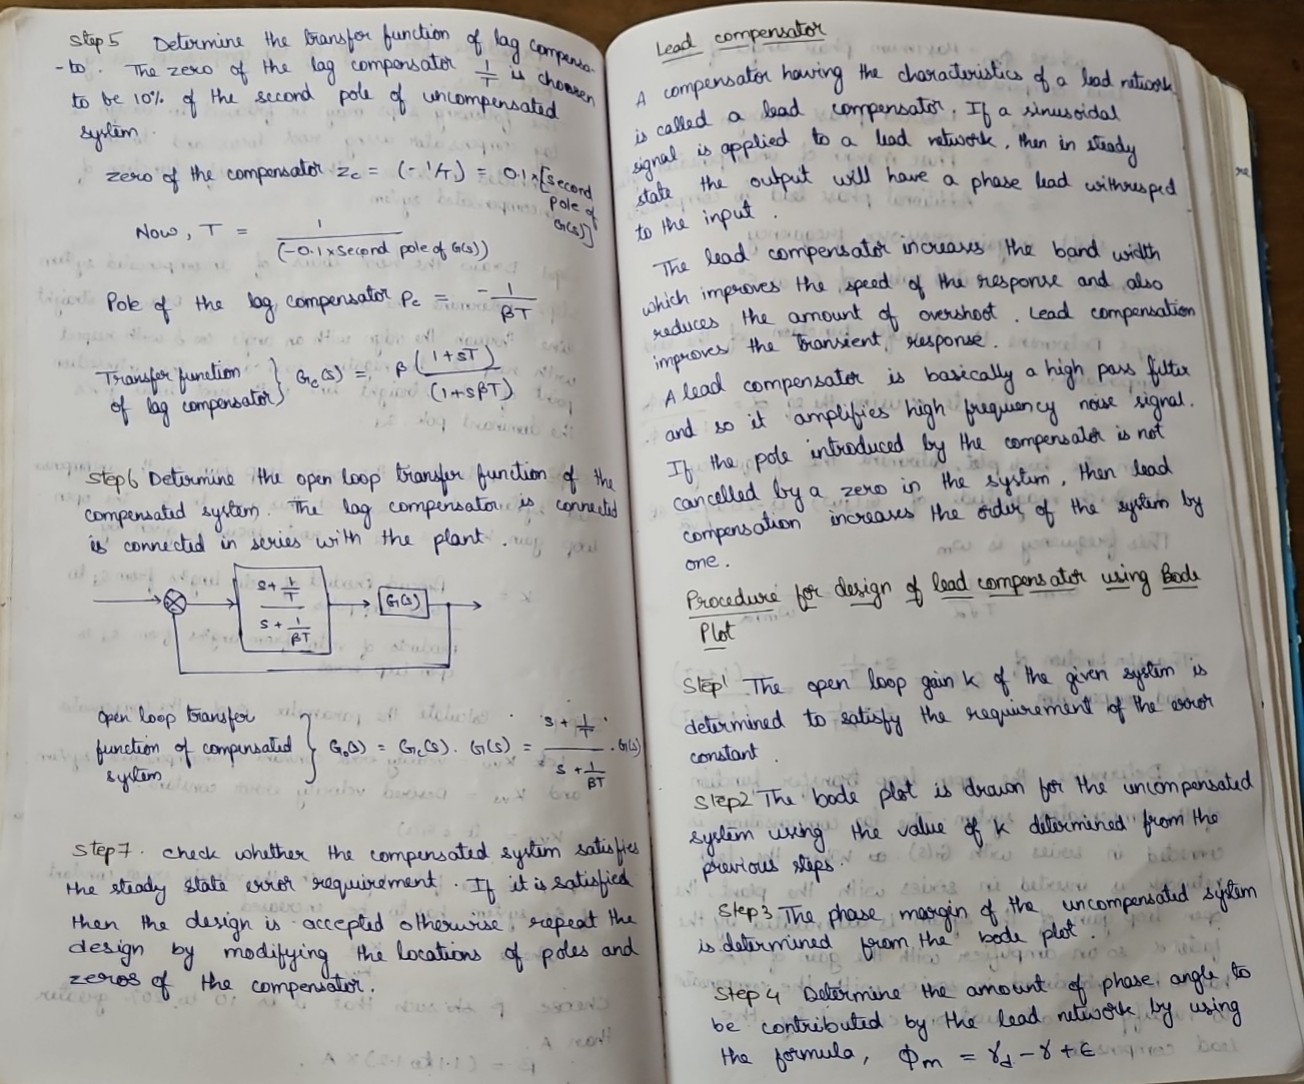 Step 5 Determine the transfer function of lag compensa-
-to. The zero of the lag compensator 1/T is choosen
to be 10% of the second pole of uncompensated
system.
zero of the compensator Zc = (-1/T) = 0.1×[second
Pole of
G(s)]
Now, T = 1/(-0.1×second pole of G(s))
Pole of the lag compensator Pc = -1/βT
Transfer function
of lag compensator } Gc(s) = β (1+sT)/(1+sβT)
Step6 Determine the open loop transfer function of the
compensated system. The lag compensator is connected
is connected in series with the plant.
s+1/T
s+1/βT
G(s)
Open loop transfer
function of compensated } G₀(s) = Gc(s). G(s) = s+1/T / s+1/βT . G(s)
system
Step7. check whether the compensated system satisfies
the steady state error requirement. If it is satisfied
then the design is accepted otherwise, repeat the
design by modifying the locations of poles and
zeros of the compensator.
Lead compensator
A compensator having the characteristics of a lead network
is called a lead compensator. If a sinusoidal
signal is applied to a lead network, then in steady
state the output will have a phase lead withrespect
to the input.
The lead compensator increases the band width
which improves the speed of the response and also
reduces the amount of overshoot. Lead compensation
improves the transient response.
A lead compensator is basically a high pass filter
and so it amplifies high frequency noise signal.
If the pole introduced by the compensator is not
cancelled by a zero in the system, then lead
compensation increases the order of the system by
one.
Procedure for design of lead compensator using Bode
Plot
Step1 The open loop gain K of the given system is
determined to satisfy the requirement of the error
constant.
Step2 The bode plot is drawn for the uncompensated
system using the value of K determined from the
previous steps.
Step3 The phase margin of the uncompensated system
is determined from the bode plot.
Step 4 Determine the amount of phase angle to
be contributed by the lead network by using
the formula, Φm = γd - γ + ε